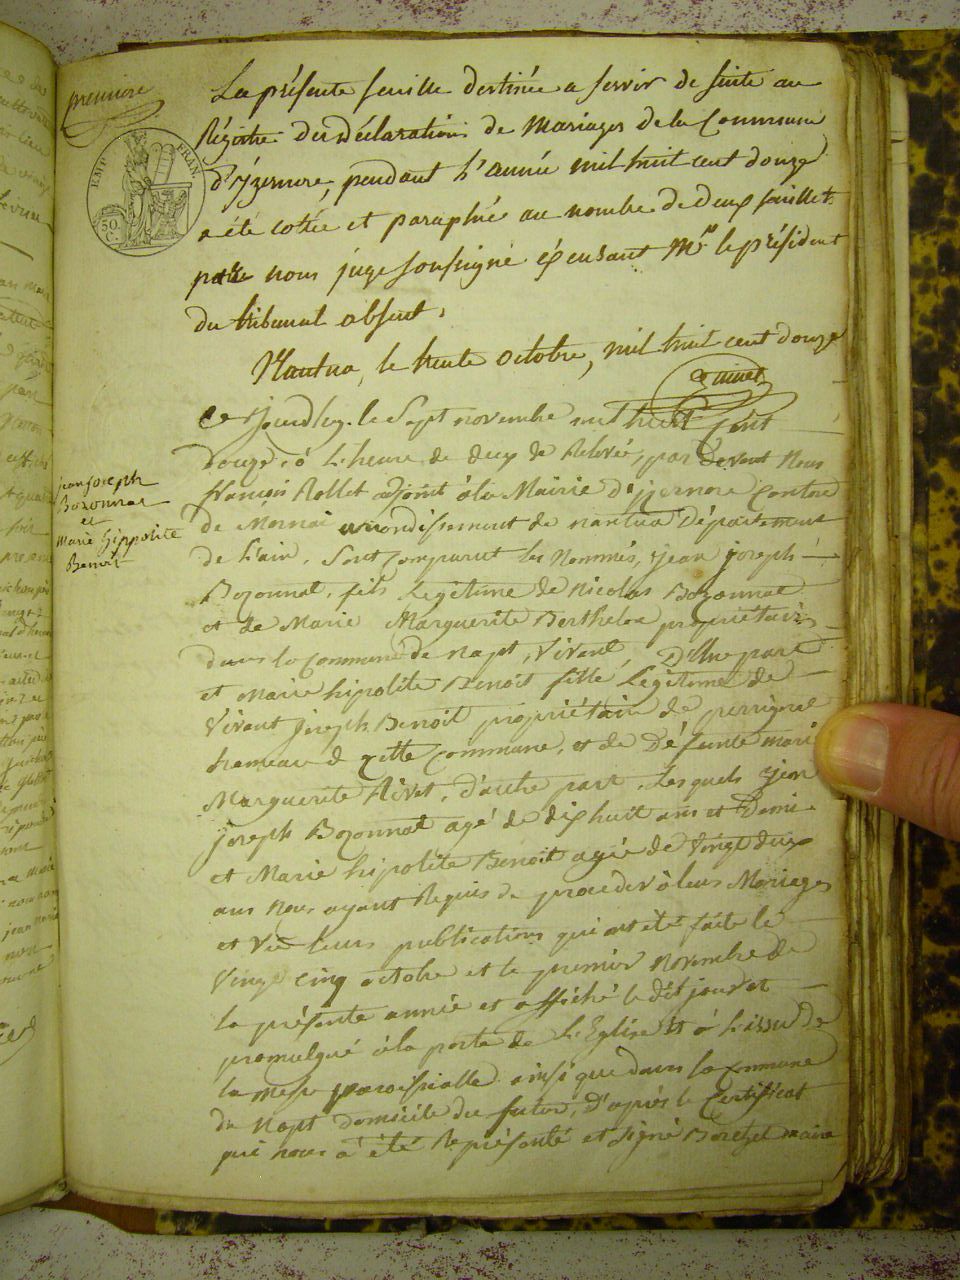 première
EMP. FRAN.
50. C.
La présente feuille destinée a servir de suite au
Régistre des déclarations de Mariages de la Commune
d'yzernore, pendant l'année mil huit cent douze
a été cotée et paraphée au nombre de deux feuillets
par nous juge soussigné éxensant Mr. le président
du tribunal absent,
Nantua, le trente octobre, mil huit cent douze
jean joseph
Bozonnat
et
marie hippolite
Benoit
ce jourdhuy le Sept novembre mil huit Cent
douze, à l'heure de deux de Relevée, par devant nous
françois Rollet adjoint à la Mairie d'izernore Canton
de Mornai arrondissement de nantua Département
de l'ain, Sont Comparut les Nommés, jean joseph
Bozonnat, fils Legitime de Nicolas Bozonnat
et de Marie Marguerite Berthelon propriétaire
dans la Commune de Napt, vivant D'Une part
et Marie hipolite Benoit fille Légitime de
vivant joseph Benoit propriétaire de perrignat
hameau de cette Commune, et de Défunte mari
Marguerite Rivet, d'autre part, Lesquels jean
joseph Bozonnat agé de dixhuit ans et Demi
et Marie hipolite Benoit agée de Vingt deux
ans nous ayant Requis de proceder à leurs Mariages
et Vu leurs publications qui ont été faite le
Vingt cinq octobre et le premier Novembre de
la présente année et affiché le dit jour et
promulgué à la porte de L'Eglise et à L'issu de
la messe paroissialle ainsi que dans la Commune
de Napt domicile du futur, d'après le Certificat
qui nous à été Représenté et signé maire